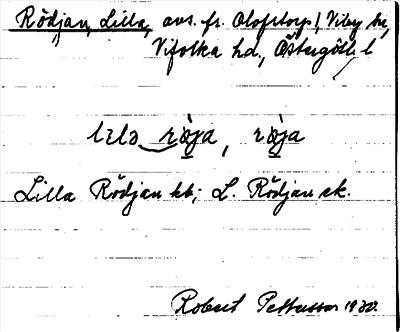 Rödjan, Lilla, avs. fr. Olofstorp, Viby sn,
Vifolka hd, Östergötl. l
lɩlə rø̀ja, rø̀ja
Lilla Rödjan kb; L. Rödjan ek.
Robert Pettersson 1930.